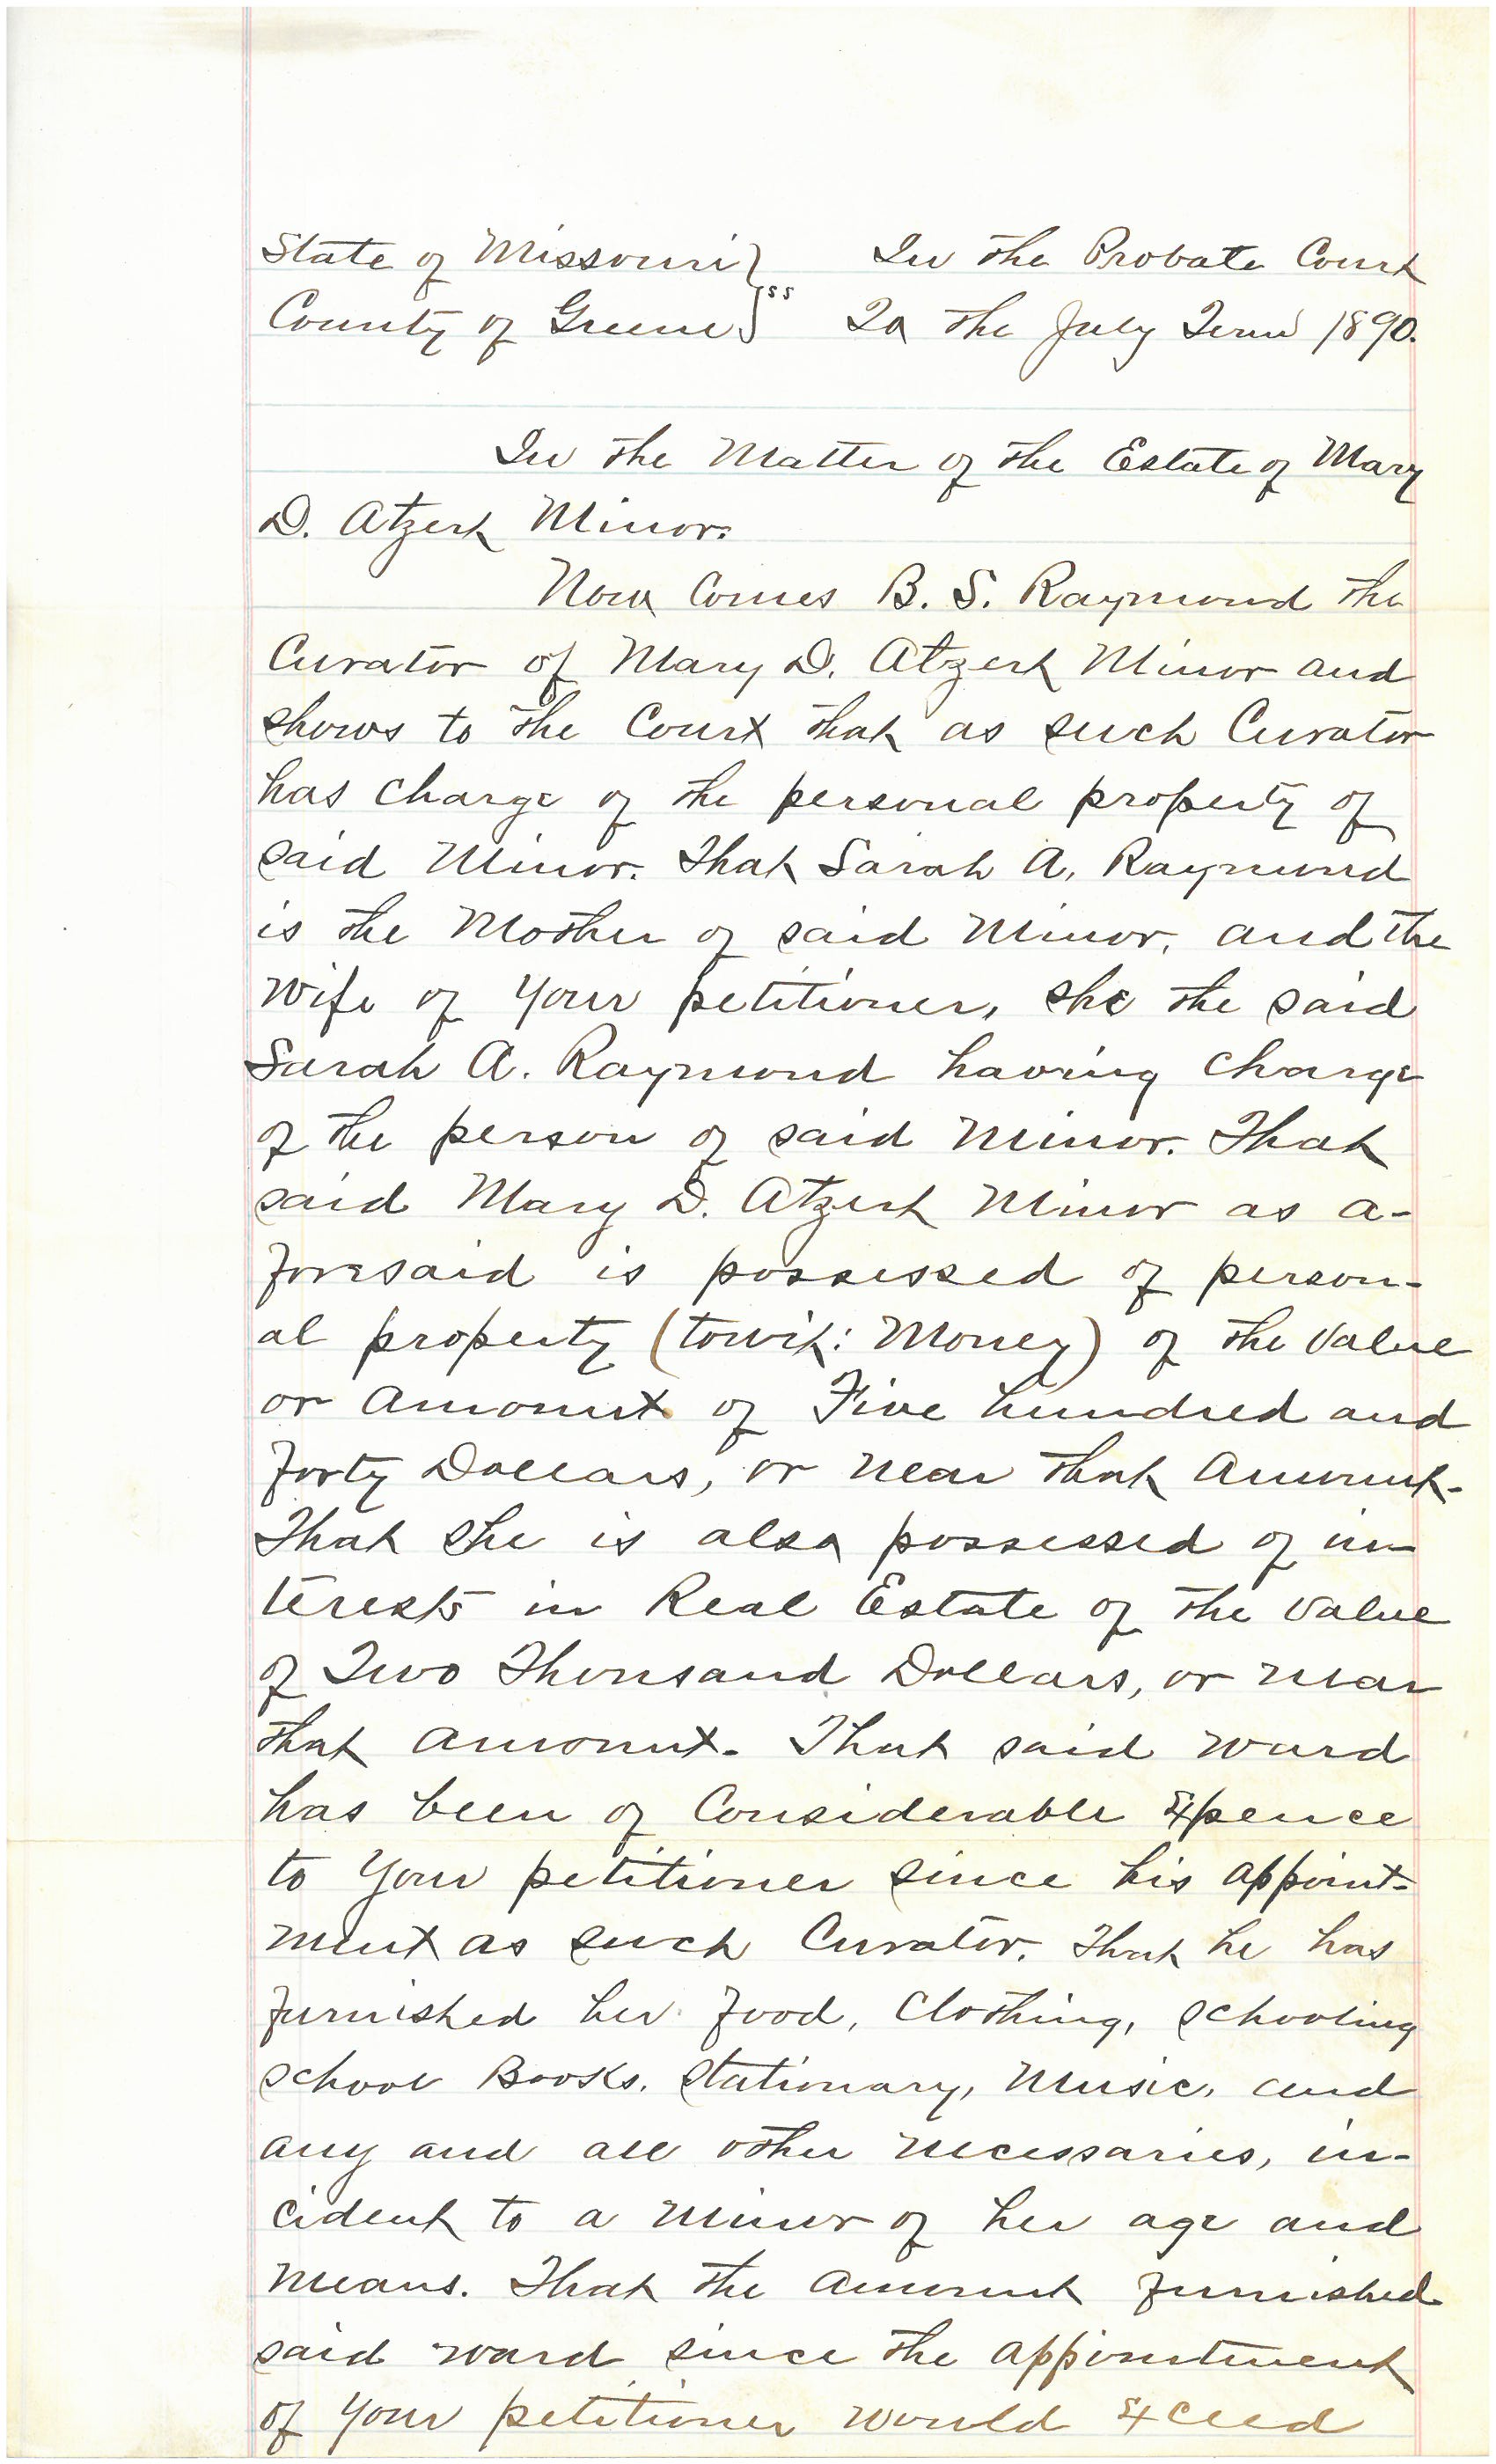 State of Missouri } ss In the Probate Court
County of Greene } To the July Term 1890.
In the Matter of the Estate of Mary
D. Atzert Minor.
Now Comes B. S. Raymond the
Curator of Mary D. Atzert Minor and
shows to the Court that as such Curator
has charge of the personal property of
said Minor. That Sarah A. Raymond
is the Mother of said Minor, and the
Wife of your petitioner, she the said
Sarah A. Raymond having charge
of the person of said Minor. That
said Mary D. Atzert Minor as a-
foresaid is possessed of person-
al property (towit: Money) of the value
or amount of Five hundred and
forty Dollars, or near that Amount.
That she is also possessed of in-
terests in Real Estate of the value
of Two Thousand Dollars, or near
that amount. That said ward
has been of Considerable Expence
to your petitioner since his appoint-
ment as such Curator. That he has
furnished her food, Clothing, schooling
school Books, stationary, Music, and
any and all other necessaries, in-
cident to a Minor of her age and
means. That the amount furnished
said ward since the appointment
of your petitioner would Exceed